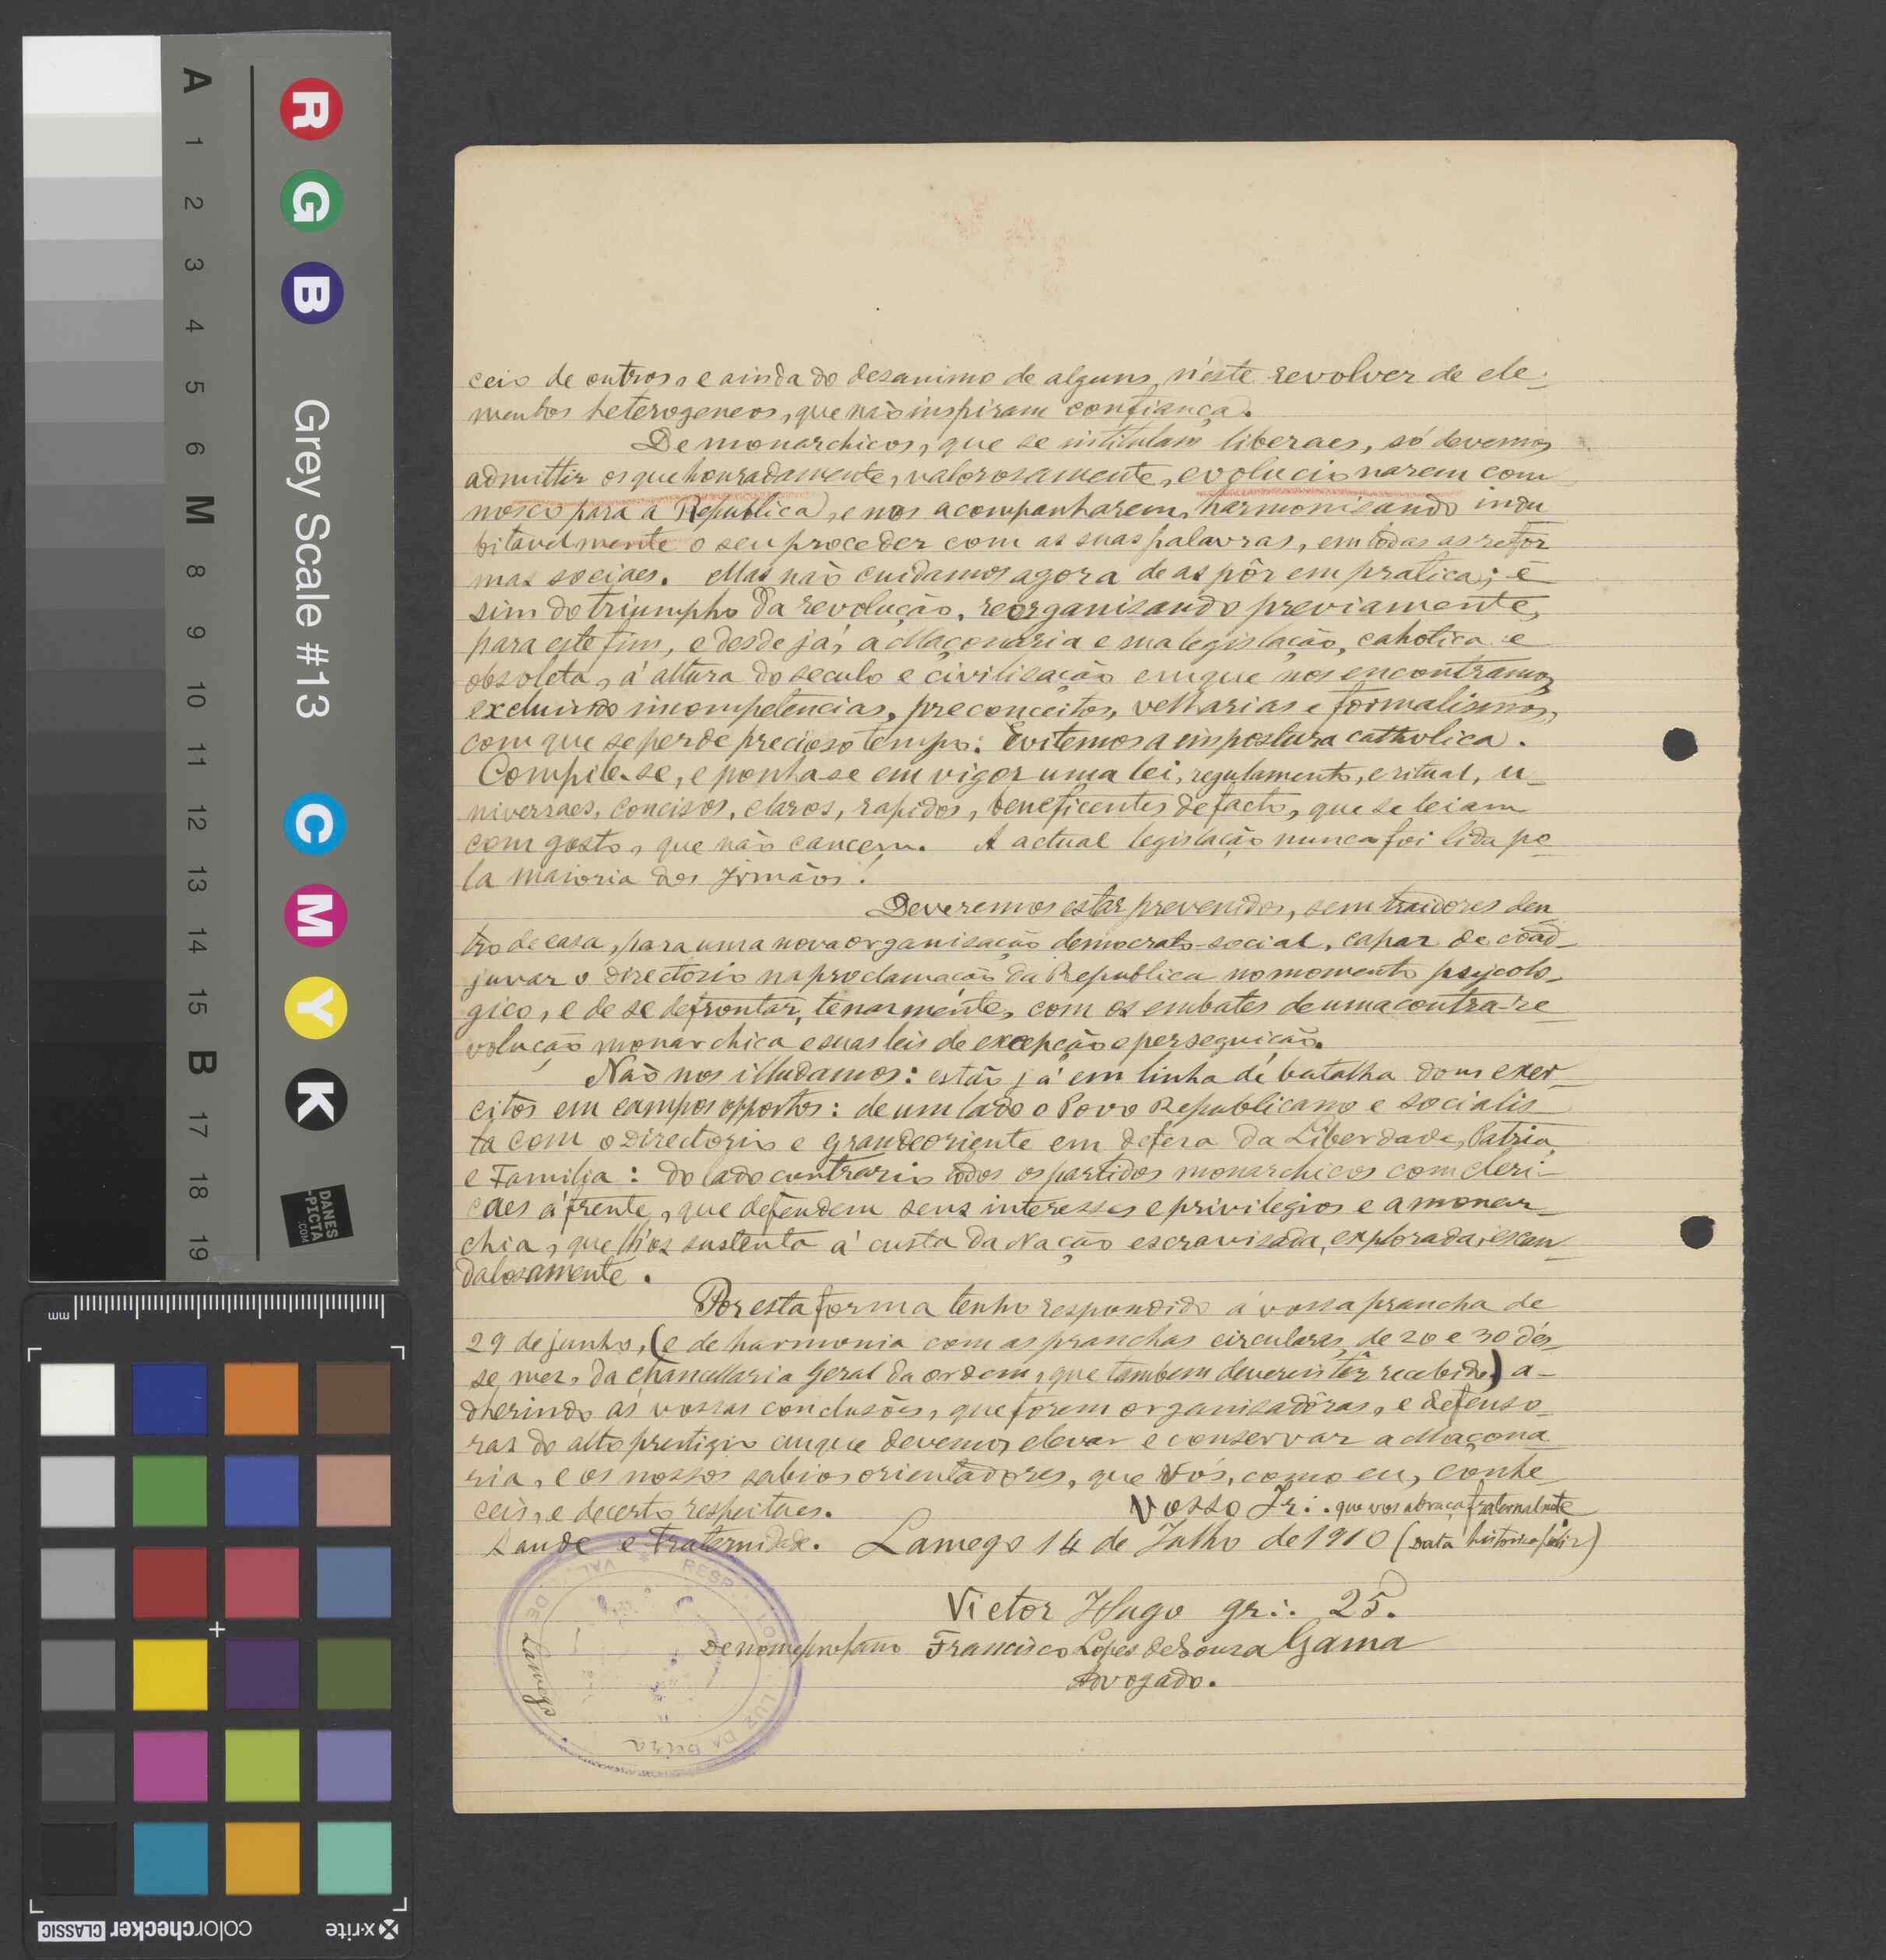 A 1 2 3 4 5 6 M 8 9 10 11 12 13 14 15 B 17 18 19
R G B
Grey Scale #13
C M Y K
DANES
-PICTA
.COM
mm
colorchecker CLASSIC
x-rite
ceio de outros, e ainda do desanimo de alguns, n'éste revolver de ele-
mentos heterogeneos, que não inspiram confiança.
De monarchicos, que se intitulam liberaes, só devemos
admittir os que honradamente, valorosamente, evolucionarem com
nosco para a Republica, e nos acompanharem, harmonisando indu
bitavelmente o seu proceder com as suas palavras, em todas as refor
mas sociaes. Mas não cuidamos agora de as pôr em pratica; é
sim do triumpho da revolução, reorganisando previamente,
para este fim, e desde já, a Maçonaria e sua legislação, cahotica e
obsoleta, á altura do seculo e civilisação em que nos encontramos,
excluindo incompetencias, preconceitos, velharias e formalismos,
com que se perde precioso tempo: Evitemos a impostura catholica.
Compile-se, e ponha-se em vigor uma lei, regulamento, e ritual, u-
niversaes, concisos, claros, rapidos, beneficentes de facto, que se leiam
com gosto, que não cancem. A actual legislação nunca foi lida pe-
la maioria dos Irmãos!
Deveremos estar prevenidos, sem traidores den-
tro de casa, para uma nova organisação democrato-social, capaz de coad-
juvar o Directorio na proclamação da Republica no momento psycolo-
gico, e de se defrontar, tenazmente, com os embates de uma contra-re-
volução monarchica e suas leis de excepção e perseguição.
Não nos illudamos: estão já em linha de batalha dous exer-
citos em campos oppostos: de um lado o Povo Republicano e socialis-
ta com o Directorio e grandeoriente em defeza da Liberdade, Patria,
e Familia: do lado contrario todos os partidos monarchicos com cleri-
caes á frente, que defendem seus interesses e privilegios e a monar-
chia, que lh'os sustenta á custa da Nação escravisada, explorada, escan-
dalosamente.
Por esta forma tenho respondido á vossa prancha de
29 de junho, (e de harmonia com as pranchas circulares, de 20 e 30 dés-
se mez, da Chancellaria Geral da ordem, que tambem devereis têr recebido) a-
dherindo ás vossas conclusões, que forem organisadôras, e defenso-
ras do alto prestigio em que devemos elevar e conservar a Maçona-
ria, e os nossos sabios orientadores, que Vós, como eu, conhe-
ceis, e decerto respeitaes.
Vosso Ir∴ que vos abraça fraternalmte
Saude e Fraternidade. Lamego 14 de Julho de 1910 (Data historica feliz)
Victor Hugo gr∴ 25.
De nome profano Francisco Lopes de Souza Gama
Advogado.
RESP LOJ LUZ DA Beira VAL DE Lamego